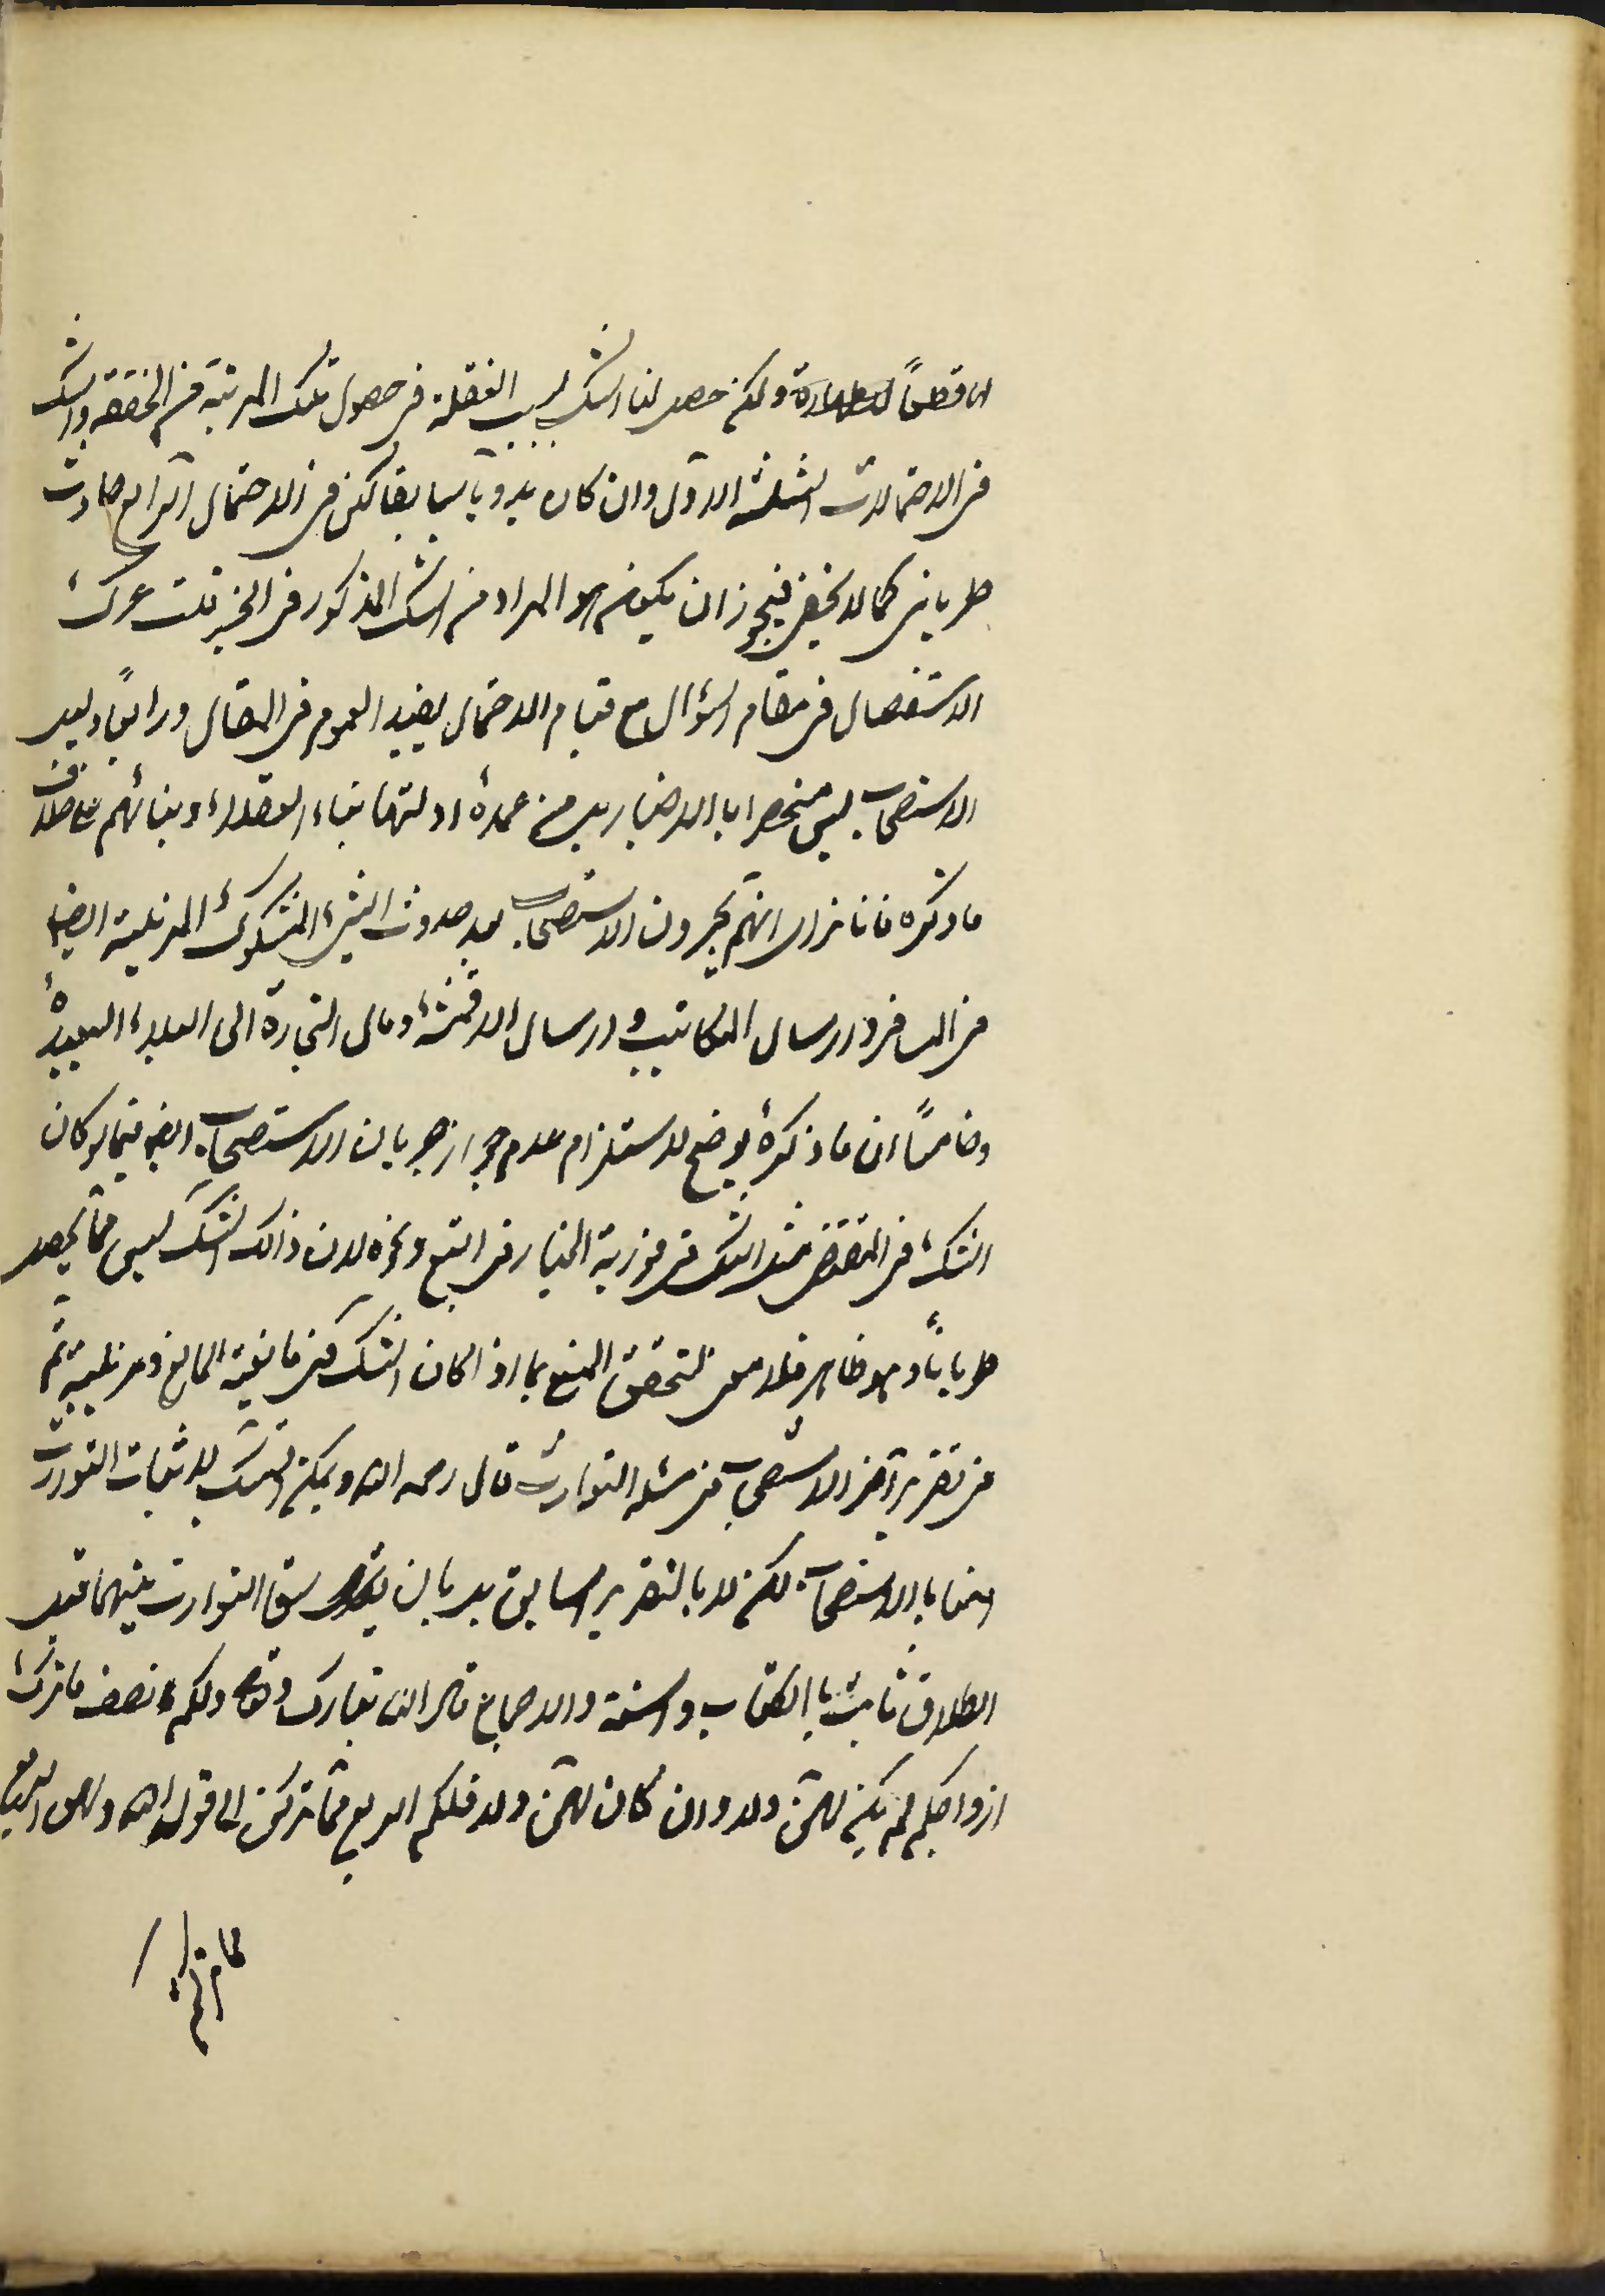 لنا قطعاً ولكن حصل لنا الشك بسبب الغفلة فى حصول تلك المرتبة من الخفقة والشك
فى الاحتمالات الثلثة الاول وان كان بدويا سابقا لكن فى الاحتمال الرابع حادث
طريانى كما لا يخفى فيجوز ان يكون هو المراد من الشك المذكور فى الخبر قلت ترك
الاستفصال فى مقام السؤال مع قيام الاحتمال يفيد العموم فى المقال ورابعاً دليل
الاستصحاب ليس منحصرا بالاخبار بل من عمدة ادلتها بناء العقلاء وبنائهم على خلاف
ما ذكره فانا نرى انهم يجرون الاستصحاب بعد حدوث الشىء المشكوك المزيلية ايضا
فى السفر وارسال المكاتيب وارسال الاقمشة ومال التجارة الى البلاد البعيدة
وخامساً ان ما ذكره لو صح لاستلزم عدم جواز جريان الاستصحاب ايضا فيما لو كان
الشك فى المقتضى مثل الشك فى فورية الخيار فى البيع ونحوه لان ذالك الشك ليس مما يحصل
طرياناً وهو ظاهر فلا معنى لتحقق المنع بما اذا كان الشك فى مانعية المانع ومزيليته ثم
فى تقرير آخر الاستصحاب فى مسئلة التوارث قال رحمه الله ويمكن التمسك لاثبات التوارث
ايضا بالاستصحاب لكن لا بالتقرير السابق بل بان يقال سبق التوارث بينهما قبل
الطلاق ثابت بالكتاب والسنة والاجماع قال الله تبارك وتعالى ولكم نصف ما ترك
ازواجكم لم يكن لهن ولد وان كان لهن ولد فلكم الربع مما تركن الى قوله الله ولهن الربع
مما تركتم